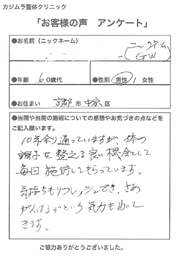 カジムラ整体クリニック
「お客様の声　アンケート」
●お名前(ニックネーム)
GW
●年齢　60歳代　●性別（男性）・女性
●お住まい　京都市中京区
●当院や当院の施術についての感想やお気づきの点などをご記入願います。
10年余り通っていますが、体の
調子を整える良い機会として
毎回施術してもらっています。
気持ちもリフレッシュでき、さあ
がんばるぞという気力もわいて
きます。
ご協力ありがとうございました。